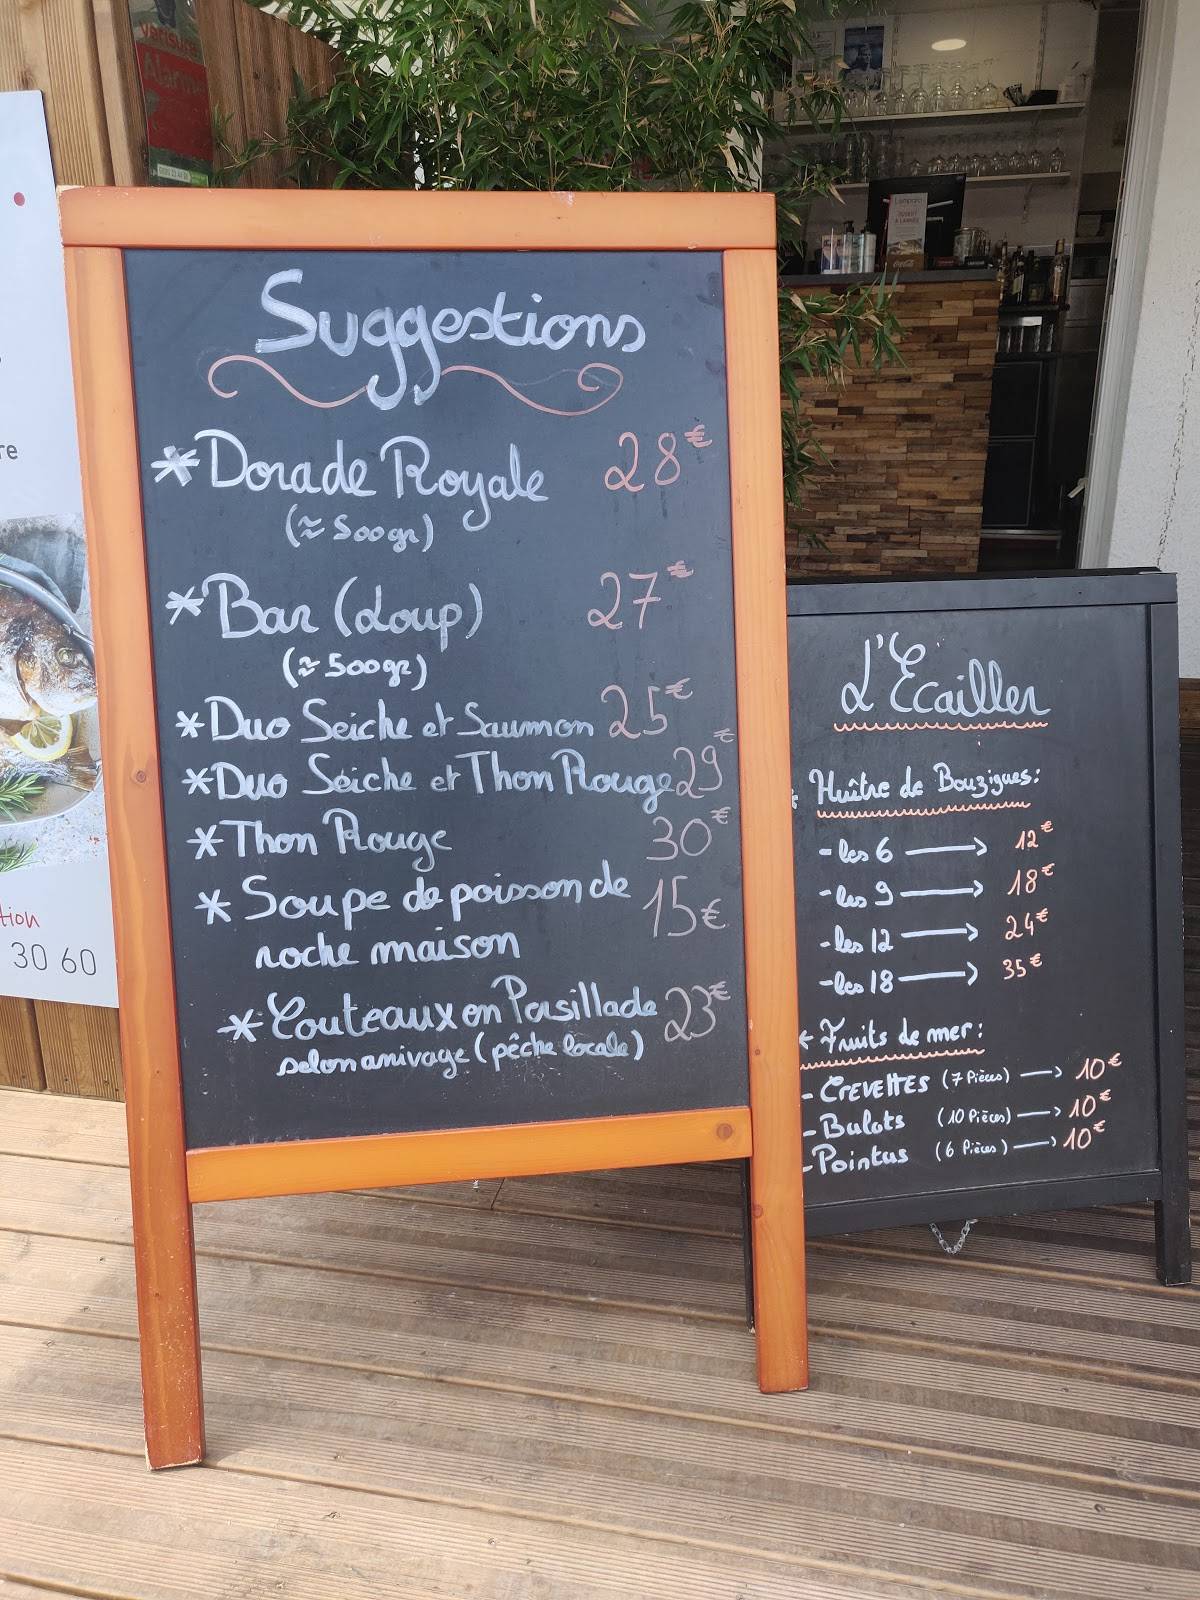 verisure
Alarme
re
tion
30 60
Suggestions
* Dorade Royale 28€
(≈ 500gr)
* Bar (Loup) 27€
(≈ 500gr)
* Duo Seiche et Saumon 25€
* Duo Seiche et Thon Rouge 29€
* Thon Rouge 30€
* Soupe de poisson de 15€
roche maison
* Couteaux en Persillade 23€
selon arrivage (pêche locale)
L'Écailler
* Huître de Bouzigues:
- les 6 → 12€
- les 9 → 18€
- les 12 → 24€
- les 18 → 35€
* Fruits de mer:
- Crevettes (7 Pièces) → 10€
- Bulots (10 Pièces) → 10€
- Pointus (6 Pièces) → 10€